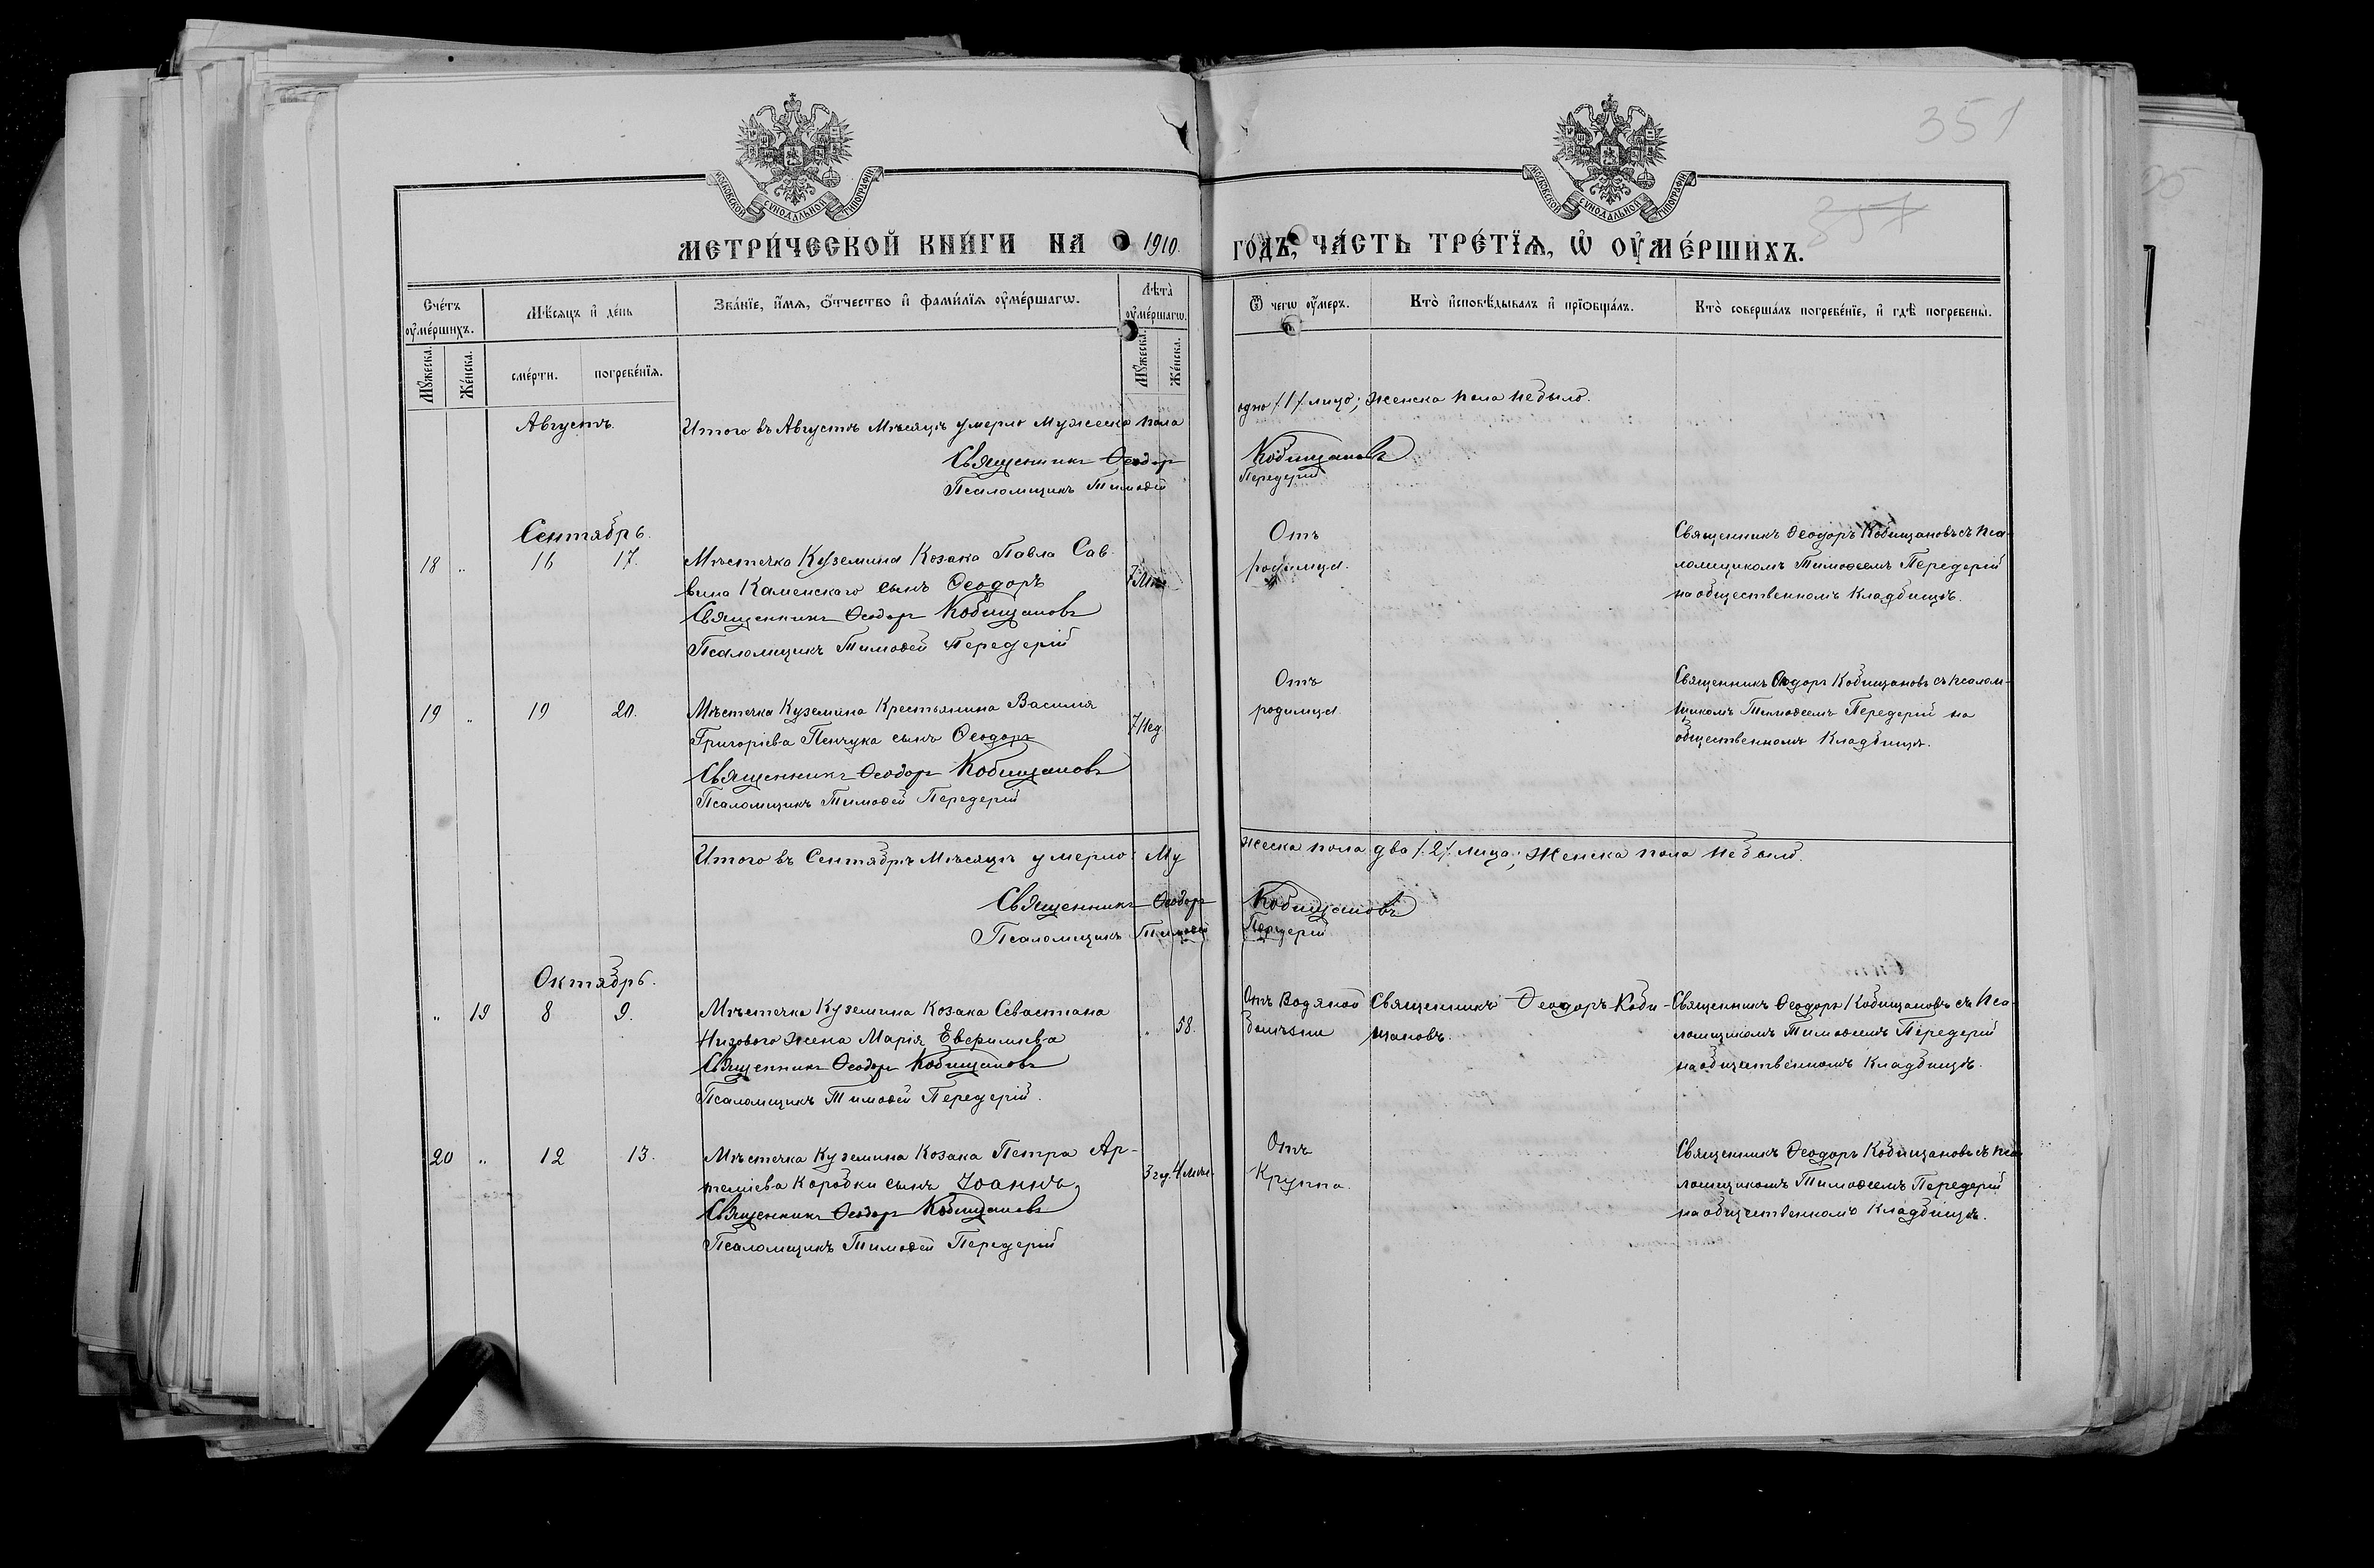 351
357
МОСКОВСКОЙ СѴНОДАЛЬНОЙ ТИПОГРАФІИ
МОСКОВСКОЙ СѴНОДАЛЬНОЙ ТИПОГРАФІИ
МЕТРИ́ЧЕСКОЙ КНИ́ГИ НА 1910.
ГОДЪ, ЧА́СТЬ ТРЕ́ТЇѦ, Ѡ҆ ОУ҆МЕ́РШИХЪ.
Сче́тъ оу҆ме́ршихъ.
Мѣ́сяцъ и҆ де́нь
Зва́нїе, и҆́мѧ, ѻ҆́тчество и҆ фами́лїѧ оу҆ме́ршагѡ.
Лѣта̀ оу҆ме́ршагѡ.
Мꙋ́жеска.
Же́нска.
сме́рти.
погребе́нїѧ.
Мꙋ́жеска.
Же́нска.
Ѿ чегѡ оу҆́меръ.
Кто̀ и҆сповѣ́дывалъ и҆ прїѡбща́лъ.
Кто̀ соверша́лъ погребе́нїе, и҆ гдѣ̀ погребены̀.
Августъ.
Итого въ Августѣ Мѣсяцѣ умерло Мужеска пола
одно /1/ лицо; Женска пола небыло.
Священникъ Ѳеодоръ
Кобищановъ
Псаломщикъ Тимоѳей
Передерій
Сентябрь.
18 „ 16 17.
Мѣстечка Куземина Козака Павла Сав
вина Каменскаго сынъ Ѳеодоръ
Священникъ Ѳеодоръ Кобищановъ
Псаломщикъ Тимоѳей Передерій
Отъ
родимца.
Священникъ Ѳеодоръ Кобищановъ съ Пса-
ломщикомъ Тимоѳеемъ Передерій
на общественномъ Кладбищѣ.
19 „ 19 20.
Мѣстечка Куземина Крестьянина Василія
Григоріева Пенчука сынъ Ѳеодоръ
Священникъ Ѳеодоръ Кобищановъ
Псаломщикъ Тимоѳей Передерій
7 Нед
Отъ
родимца.
Священникъ Ѳеодоръ Кобищановъ съ псалом-
щикомъ Тимоѳеемъ Передерій на
общественномъ Кладбищѣ.
Итого въ Сентябрѣ Мѣсяцѣ умерло Му
жеска пола два /2/ лица; Женска пола небыло.
Священникъ Ѳеодоръ
Кобищановъ
Псаломщикъ Тимоѳей
Передерій
Октябрь.
„ 19 8 9.
Мѣстечка Куземина Козака Севастіана
Низового жена Марія Евфиміева
Священникъ Ѳеодоръ Кобищановъ
Псаломщикъ Тимоѳей Передерій.
„ 58.
Отъ Водяной
болѣзни
Священникъ Ѳеодоръ Коби-
щановъ.
Священникъ Ѳеодоръ Кобищановъ съ Пса-
ломщикомъ Тимоѳеемъ Передерій
на общественномъ Кладбищѣ.
20 „ 12 13.
Мѣстечка Куземина Козака Петра Ар-
теміева Коробки сынъ Іоаннъ
Священникъ Ѳеодоръ Кобищановъ
Псаломщикъ Тимоѳей Передерій
Отъ
Круппа.
Священникъ Ѳеодоръ Кобищановъ съ Пса
ломщикомъ Тимоѳеемъ Передерій
на общественномъ Кладбищѣ.